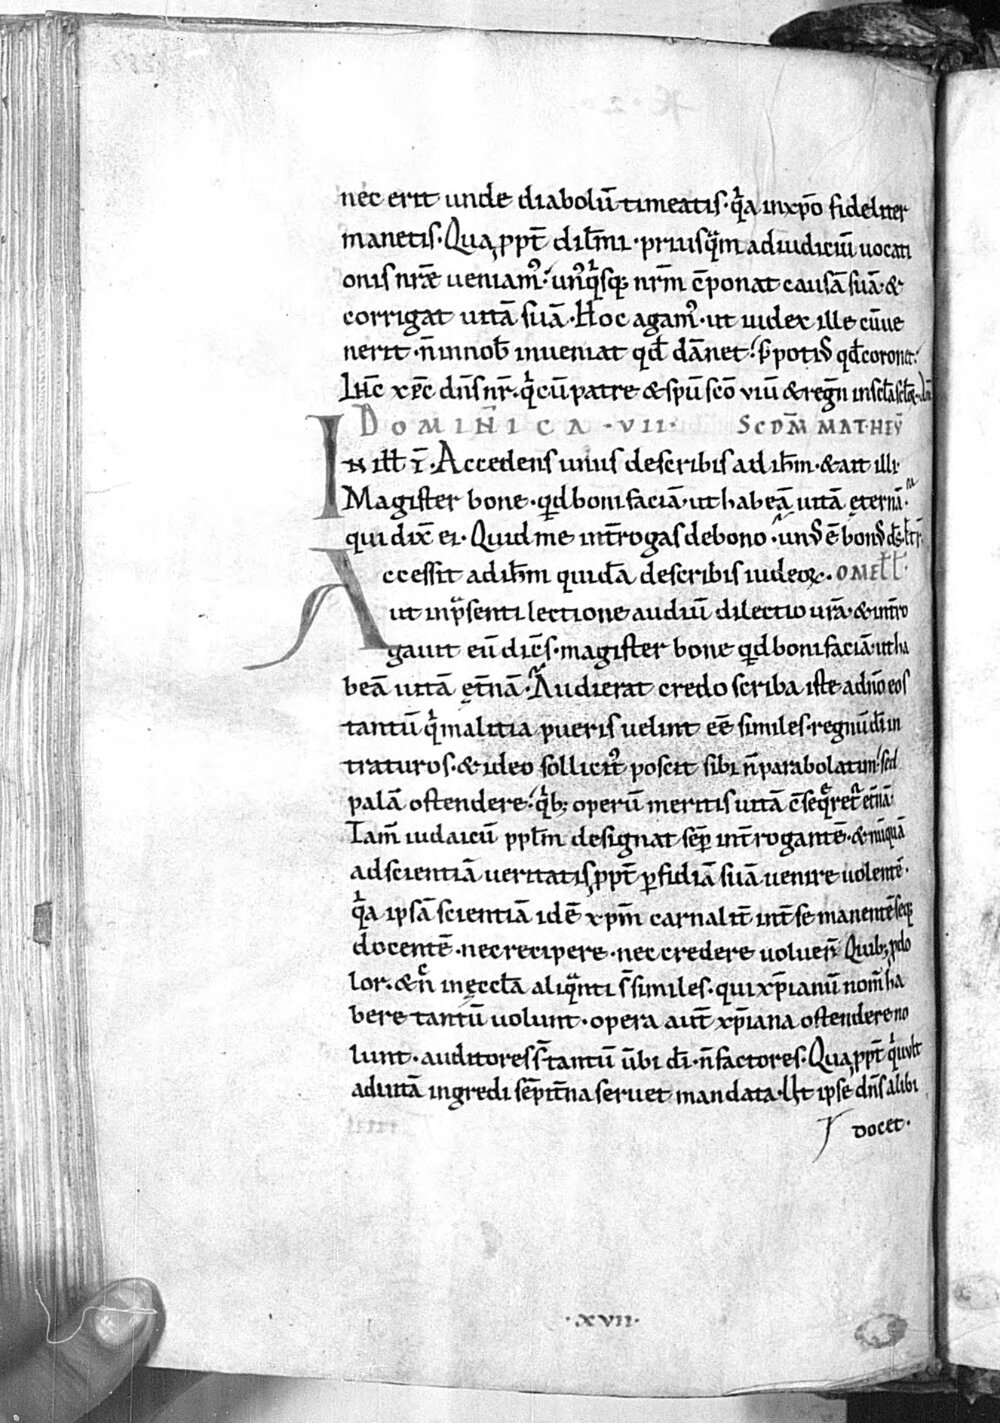 nec erit unde diabolū timeatis· qͥa in xp̄o fideliter
manetis· Qua ꝓpt̄ dil̄mi· priusqͣm ad iudiciū uocati
onis nr̄ae ueniamꝰ· unꝰqͥsq; nr̄m c̄ponat causā suā· &
corrigat uitā suā· Hoc agamꝰ· ut iudex ille cū ue
nerit· n̄ in nob̄ inueniat qd̄ dānet· s; potiꝰ qd̄ coronet·
Ihc̄ xp̄c dn̄s nr̄· qͥ cū patre & sp̄u sc̄o uiū & regn̄ in
DOMINICA ·VII· SCDM̄ MATHEV̄
IN ill̄ t̄· Accedens unus de scribis ad ih̄m· & ait illi·
Magister bone· qͥd boni faciā· ut habeā uitā ęternā·
qui dix̄ ei· Quid me int̄rogas de bono· unꝰ ē bonꝰ ds̄·
Accessit ad ih̄m quidā de scribis iudeoꝝ· OMEL̄L̄·
ut in p̄senti lectione audiū dilectio ur̄a· & int̄ro
gauit eū dicēs· magister bone qͥd boni faciā· ut ha
beā uitā ęt̄nā· Audierat credo scriba iste a dn̄o eos
tantū qͥ malitia pueris uelint eē similes· regnū dī in
traturos· & ideo sollicitꝰ poscit sibi n̄ parabolatim· sed
palā ostendere· qͥb; operū meritis uitā c̄seqͣretͬ et̄nā·
Iam̄ iudaicū pp̄lm designat sēp int̄rogantē· & nūquā
ad scientiā ueritatis ꝓpt̄ ꝑfidiā suā uenire uolentē·
qͥa ipsā scientiā idē xp̄m carnalit̄ int̄ se manentē seq;
docentē· nec recipere· nec credere uoluer̄· Quib; ꝓ do
lor· & nc̄ in ęccl̄a aliqͣnti s̄ similes· qui xp̄ianū nom̄ ha
bere tantū uolunt· opera aut̄ xp̄iana ostendere no
lunt· auditores s̄ tantū ūbi dī· n̄ factores· Qua ꝓpt̄ qͥ uult
ad uitā ingredi sēpit̄na seruet mandata· ipse dn̄s alibi
docet·
·XVII·